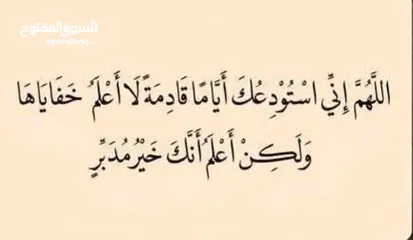 السوق المفتوح
opensooq.com
اللَّهُمَّ إِنِّي اسْتَوْدِعُكَ أَيَّامًا قَادِمَةً لَا أَعْلَمُ خَفَايَاهَا
وَلَكِنْ أَعْلَمُ أَنَّكَ خَيْرُ مُدَبِّرٍ